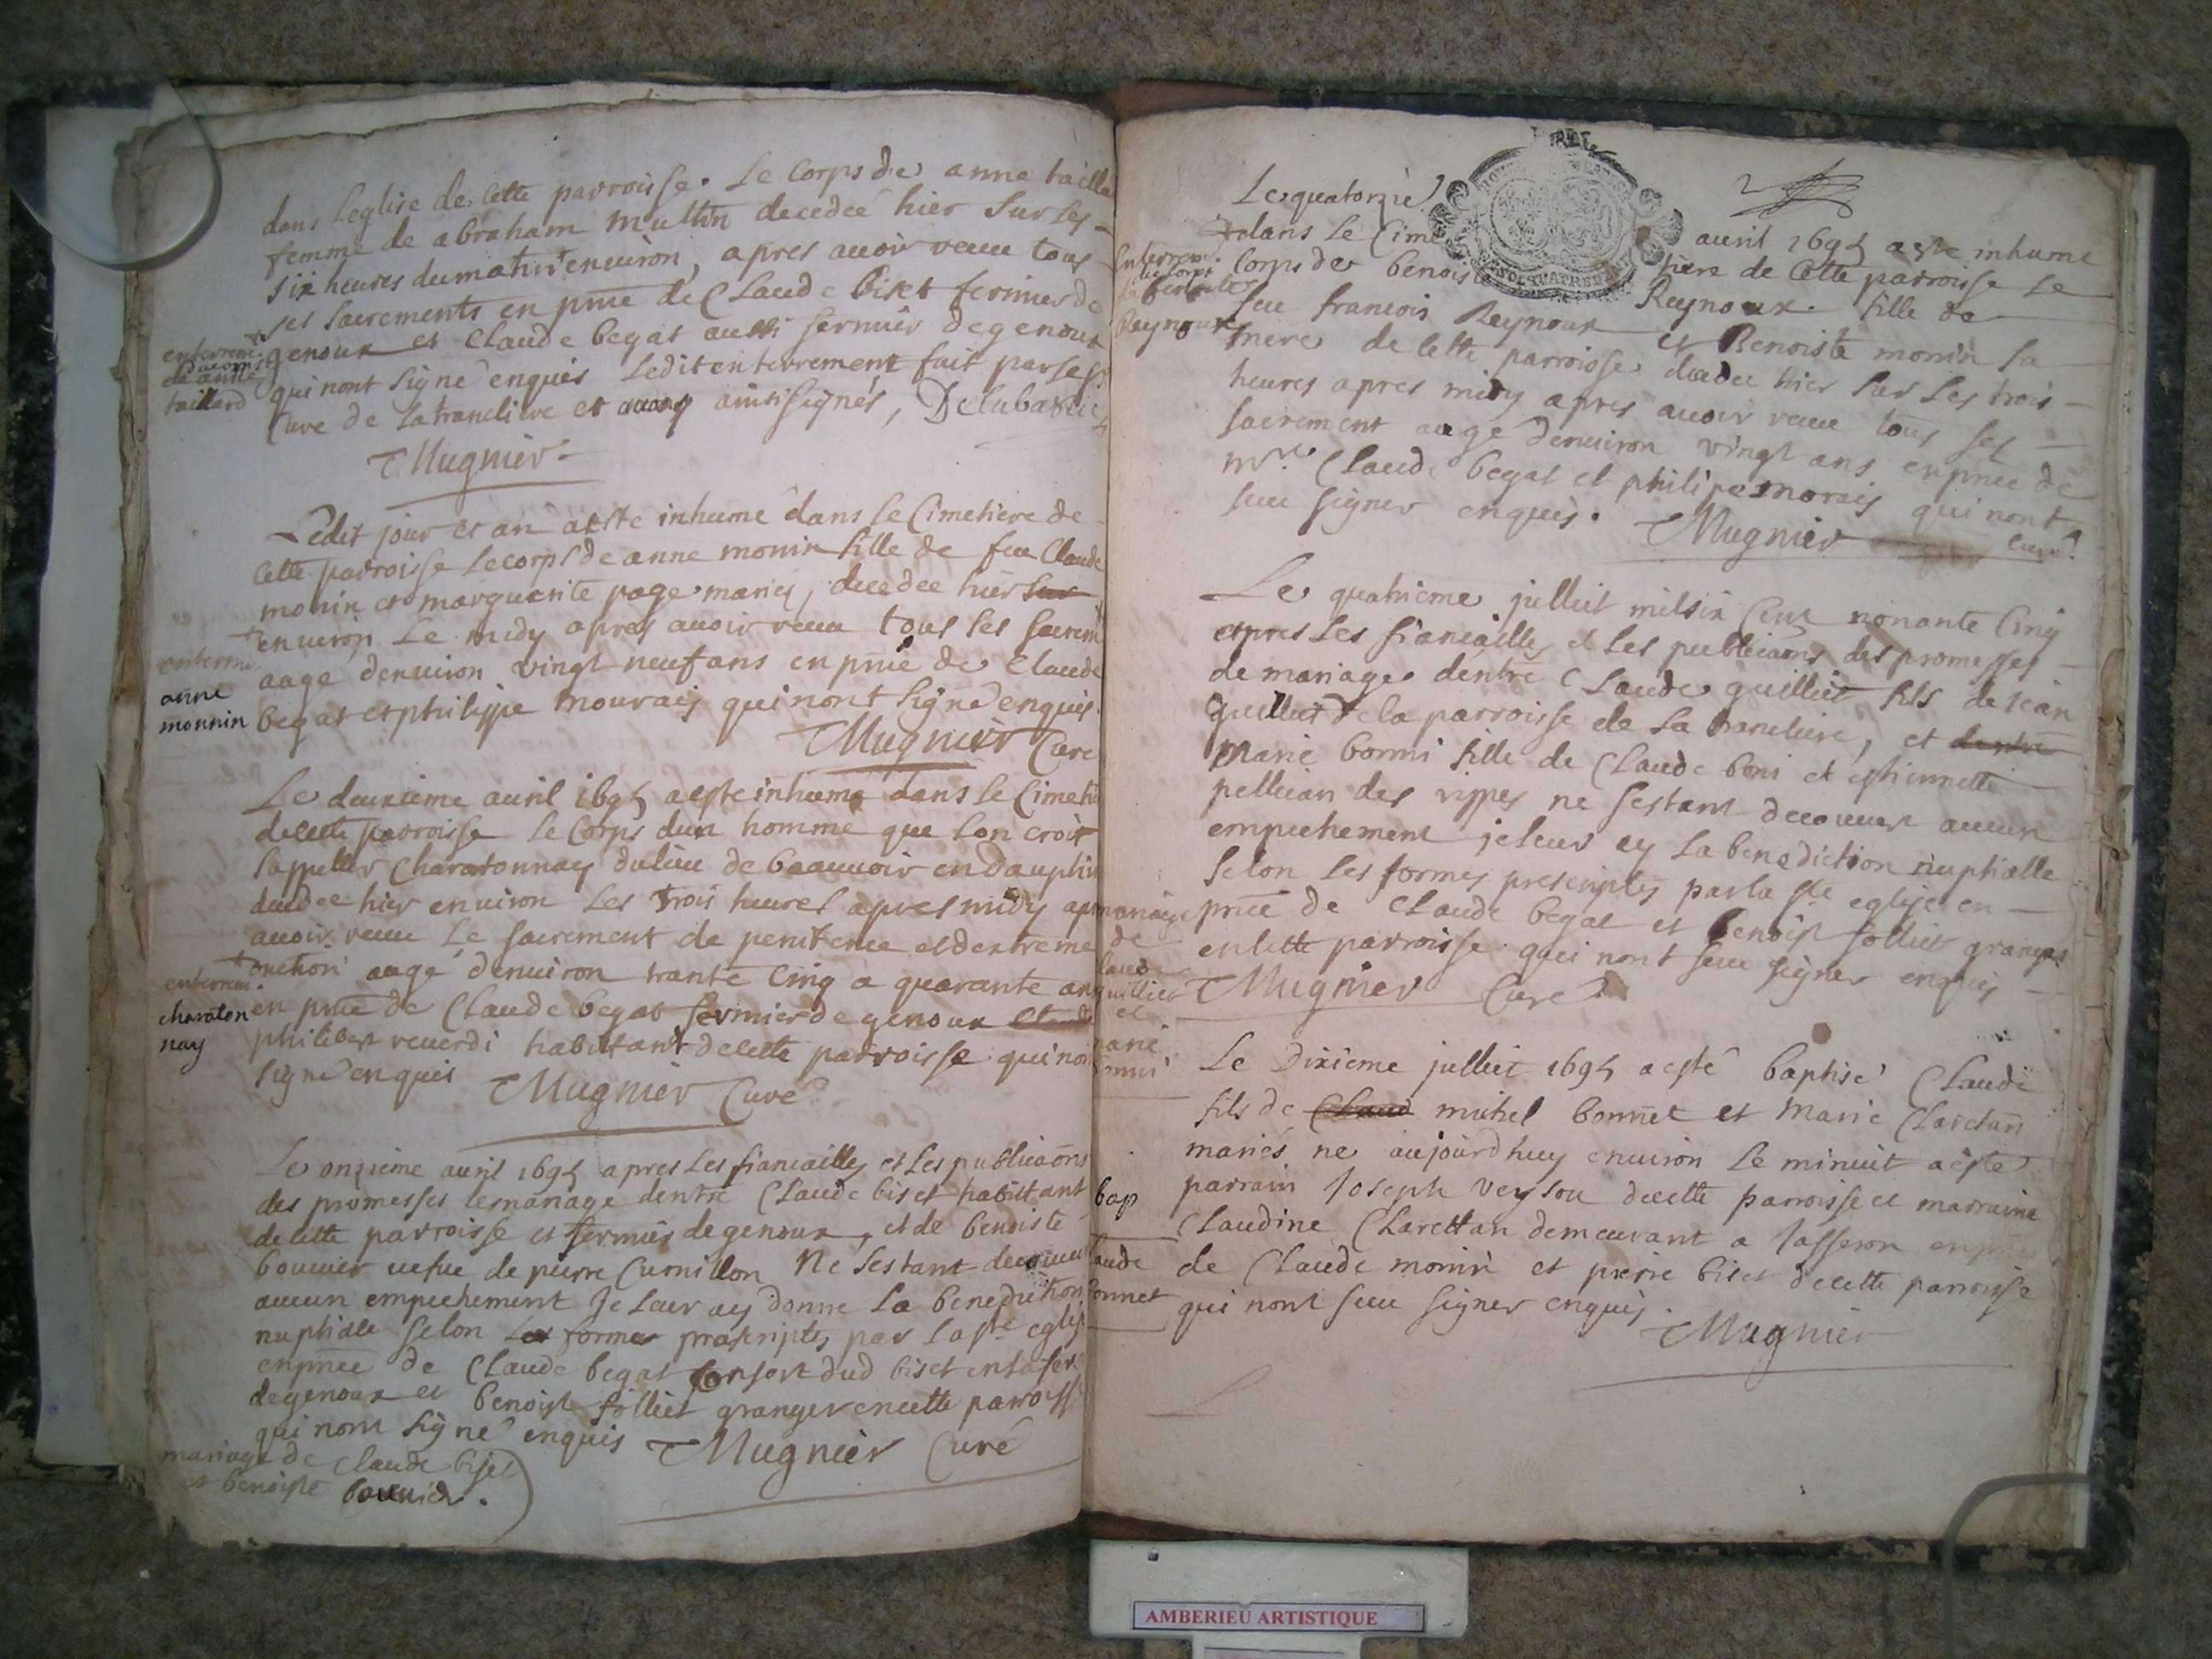 dans leglise de cette parroisse. Le Corps de anne tailla
femme de abraham decedeé hier sur les
six heures du matin environ, apres avoir receu tous
ses sacrements en pnce de Claude biset fermier de
genoux et Claude begat aussi fermier de genoux
qui nont signé enquis Ledit enterrement fait par
Curé de la tranclière et ainsi signés,
Mugnier
enterrem.
du corps
de anne
taillard
Ledit jour et an a esté inhumé dans le Cimetiere de
Cette parroisse le corps de anne monin fille de feu Claude
monin et marguerite page mariés, decedee hier sur
environ Le midy apres avoir receu tous les sacrem
aagé denviron vingt neuf ans en pnce de Claude
begat et philippe mourais qui nont signé enquis.
Mugnier Curé
enterrem.
anne
monnin
Le deuxieme avril 1695 a esté inhumé dans le Cimetie
de cette parroisse le Corps dun homme que lon croit
sappeller Charatonnay du lieu de beauvoir en Dauphin
decedee hier environ les trois heures apres midy apr
avoir receu Le sacrement de penitence et dextreme
onction aagé denviron trante Cinq a quarante ans
en pnce de Claude begat fermier de genoux
philibert reverdi habittant de cette parroisse qui non
signé enquis Mugnier Curé
enterrem.
charaton
nay
Le onzieme avril 1695 apres les fiancailles et les publicaons
des promesses le mariage dentre Claude biset habittant
de cette parroisse et fermier de genoux, et de benoiste
bouvier vefve de pierre Curnillon Ne sestant decouvert
aucun empechement Je leur ay donné La benediction
nuptialle selon les formes prascriptes par la ste eglise
en pnce de Claude begat Consort dud biset en la fer
de genoux et benoist folliet granger en cette parroisse
qui nont signé enquis Mugnier Curé
mariage de claude biset
et benoiste bouvier.
Le quatorziè avril 1695 a esté inhumé
dans le Cime tiere de Cette parroisse le
Corps de benoiste Reynoux fille de
feu francois Reynoux et Benoiste monin sa
mere de cette parroisse decedee hier sur les trois
heures apres midy apres avoir receu tous ses
sacrement aagé denviron vingt ans en pnce de
Mre Claude begat et philipe morais qui nont
sceu signer enquis. Mugnier Curé
Enterrem.
du corps
de benoiste
Reynoux
Le quatrieme julliet mil six Cent nonante Cinq
apres les fiancailles et les publicaons des promesses
de mariage dentre Claude guilliet fils de jean
guilliet de la parroisse de la tranclière, et dentre
Marie bonni fille de Claude boni et esthiennette
pellician des rippes ne sestant decouvert aucun
empechement je leur ay la benediction nuptialle
selon les formes prescriptes par la ste eglise en
pnce de Claude begat et benoist folliet granger
en cette parroisse qui nont sceu signer enquis
Mugnier Curé
mariage
de
laude
guilliet
et
marie
Le Dixieme julliet 1695 a esté baptisé Claude
fils de Claud michel bonnet et Marie Claretan
mariés ne aujourdhuy environ le minuit a esté
parrain Joseph veysou de cette parroisse et marraine
Claudine Clarettan demeurant a Jasseron en pnce
de Claude monin et pierre biset de cette parroisse
qui nont sceu signer enquis.
Mugnier
bap
laude
bonnet
AMBERIEU ARTISTIQUE